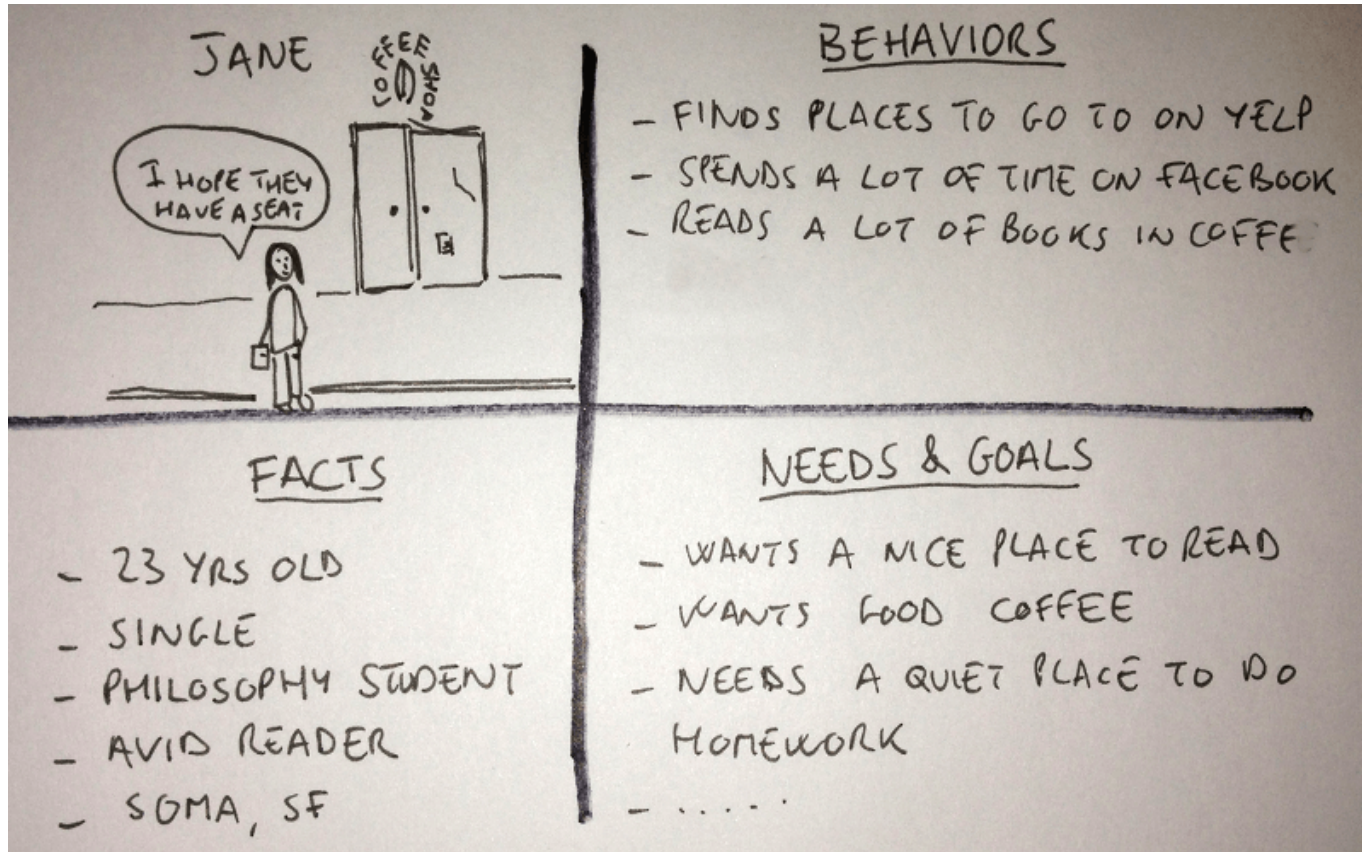 JANE
COFFEE SHOP
I HOPE THEY
HAVE A SEAT
BEHAVIORS
- FINDS PLACES TO GO TO ON YELP
- SPENDS A LOT OF TIME ON FACEBOOK
- READS A LOT OF BOOKS IN COFFE
FACTS
- 23 YRS OLD
- SINGLE
- PHILOSOPHY STUDENT
- AVID READER
- SOMA, SF
NEEDS & GOALS
- WANTS A NICE PLACE TO READ
- WANTS GOOD COFFEE
- NEEDS A QUIET PLACE TO DO
HOMEWORK
- .....